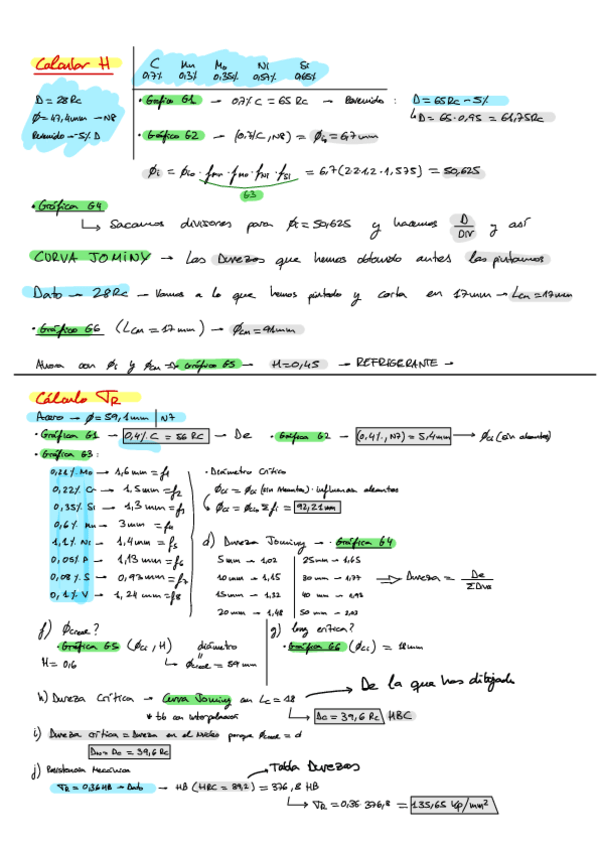 Calcular H
C Mn Mo Ni Si
0,7% 0,3% 0,35% 0,54% 0,65%
D = 28Rc
Ø = 47,4mm — N8
Revenido — 5% D
• Gráfica G1 → 0,7% C = 65 Rc → Revenido : D = 65Rc - 5%
↳ D = 65 · 0,95 = 61,75Rc
• Gráfica G2 → (0,7% C, N8) = Øi₀ = 6,7mm
Øi = Øi₀ · fMn · fMo · fNi · fSi = 6,7 (2,2·1,2 · 1,575) = 50,625
G3
• Gráfica G4
↳ Sacamos divisores para Øi = 50,625 y hacemos D/Div y así
CURVA JOMINY → Las Durezas que hemos obtenido antes las pintamos
Dato → 28Rc → Vamos a lo que hemos pintado y corta en 17mm → Lcm = 17mm
• Gráfico G6 (Lcm = 17mm) → Øcm = 41mm
Ahora con Øi y Øcm → Gráfico G5 → H = 0,45 → REFRIGERANTE →
Cálculo TR
Acero → Ø = 59,1mm | N7
• Gráfica G1 → 0,4% C = 56 RC → De • Gráfica G2 → (0,4%, N7) = 5,4mm → Øci (sin aleantes)
• Gráfica G3 :
0,21% Mo → 1,6 mm = f1
0,22% Cr → 1,5mm = f2
0,35% Si → 1,3 mm = f3
0,6% Mn → 3mm = f4
1,1% Ni → 1,4mm = f5
0,05% P → 1,13 mm = f6
0,08% S → 0,93mm = f7
0,1% V → 1,24 mm = f8
• Diámetro Crítico
Øci = Øci (sin Aleantes) · influencia aleantes
↳ Øci = Øci₀ Σ fi = 92,21mm
d) Dureza Jominy → • Gráfica G4
5mm → 1,02 25mm → 1,65
10mm → 1,15 30mm → 1,77
15mm → 1,32 40 mm → 1,93
20mm → 1,48 50 mm → 2,03
⇒ Dureza = De/ΣDiva
f) Øcreal?
• Gráfica G5 (Øci, H) diámetro
H = 0,6 ↳ Øcreal = 59mm
g) Long crítica?
• Gráfica G6 (Øci) = 18mm
h) Dureza Crítica → Curva Jominy con Lc = 18 → De la que has dibujado
* tb con interpolación ↳ Dc = 39,6 Rc HBC
i) Dureza crítica = Dureza en el Núcleo porque Øcreal = d
DN = Dc = 39,6 Rc
j) Resistencia Mecánica → Tabla Durezas
TR = 0,36 HB → Dato → HB (HRC = 39,2) = 376,8 HB
↳ TR = 0,36 · 376,8 = 135,65 Kp/mm²